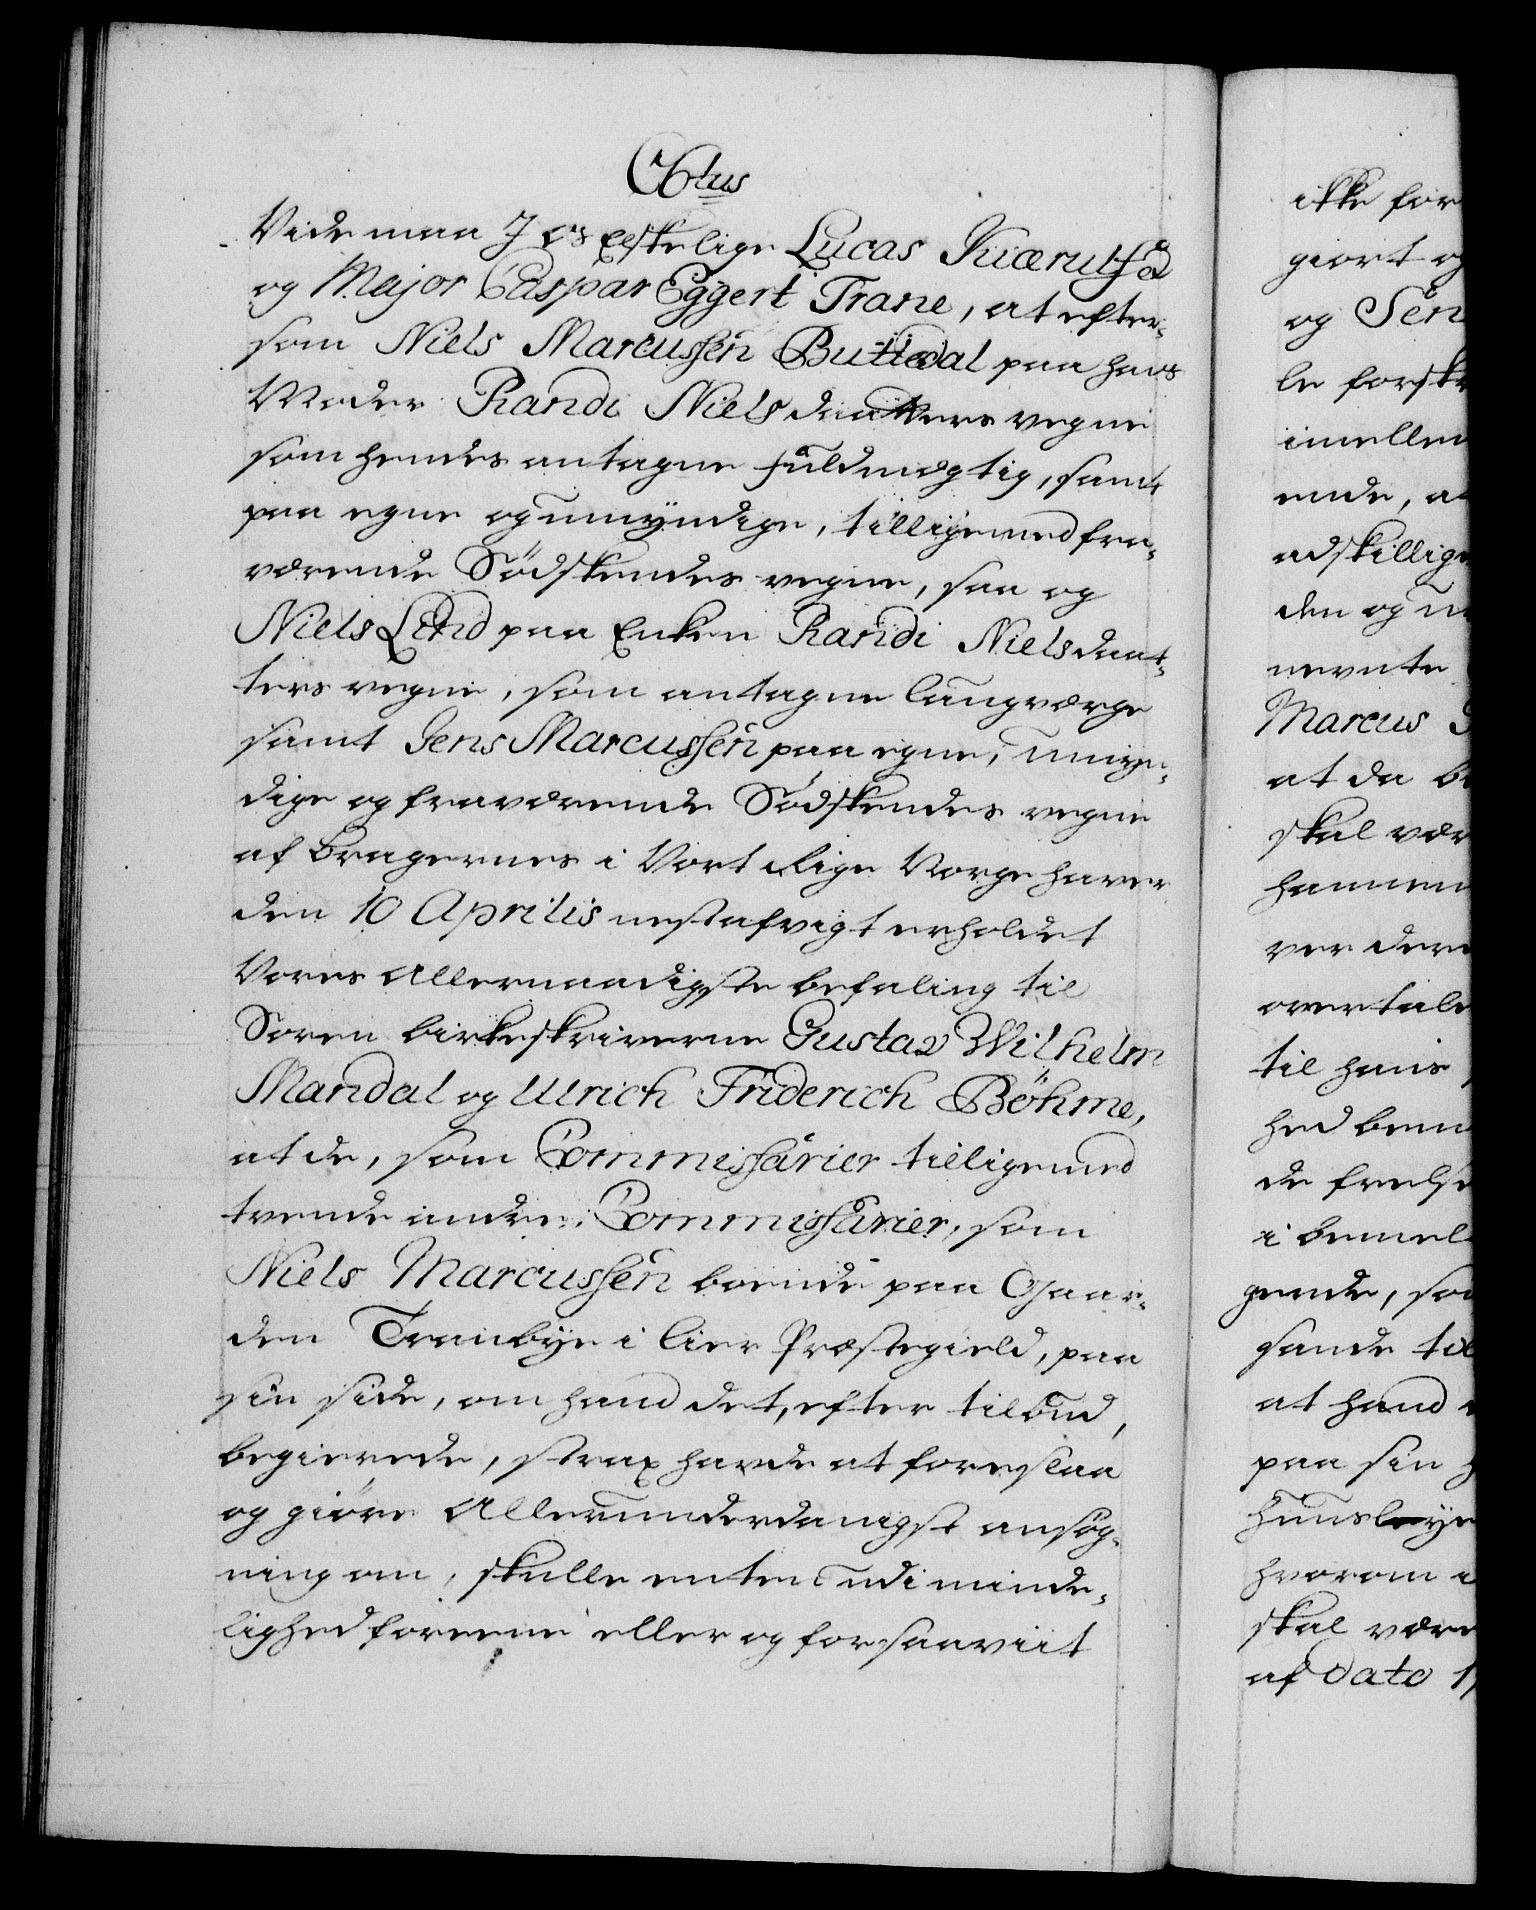 C6tus
Vide maa I os Elskelige Lucas
og Major Caspar Eggert Trane, at efter-
som Niels Marcussen Butterdal paa hans
Moder Randi Niels daatters vegne
som hendes antagne fuldmegtig, samt
paa egne og umyndige, tilligemed fra-
værende Södskendes vegne, saa og
Niels Lind paa Enken Randi Niels daat-
ters vegne, som antagne laugværge
samt Jens Marcussen paa egne, umyn-
dige og fraværende Södskendes vegne
af Bragernes i Vort Rige Norge haver
den 10 Aprilis nestafvigt erholdet
Vores Allernaadigste befaling til
Soren birkeskriverne Gustav Wilhelm
Mandal og Ulrich Friderich Böhme,
at de, som Commissarier tilligemed
tvende andre Commissarier, som
Niels Marcussen boende paa Gaar-
den Tranbye i Lier Præstegield, paa
sin side, om hand det, efter tilbud,
begierede, strax havde at foreslaa
og giöre Allerunderdanigst ansög-
ning om, skulle enten udi minde-
lighed foreene eller og forsaaviit
ikke for
giort og
og Sen
le forsk
imellem
ende, a
adskillige
den og
nevnte
Marcus
at da b
skal vær
hannem
ver der
over tale
til hans
hed bem
de frelse
i bemel
gende, so
sande til
at hand
paa sin
huusleye
hvorom
skal være
af Dato 1